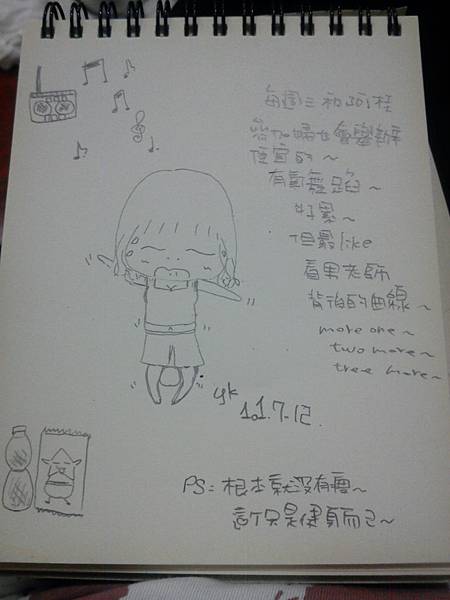 每週三和
參加婦女會舉辦
便宜的~
有氧舞蹈~
好累~
但最like
看果老師
背後的曲線~
more one~
two more~
tree more~
yk
101.7.12.
PS: 根本就沒有瘦~
這個只是健身而已~